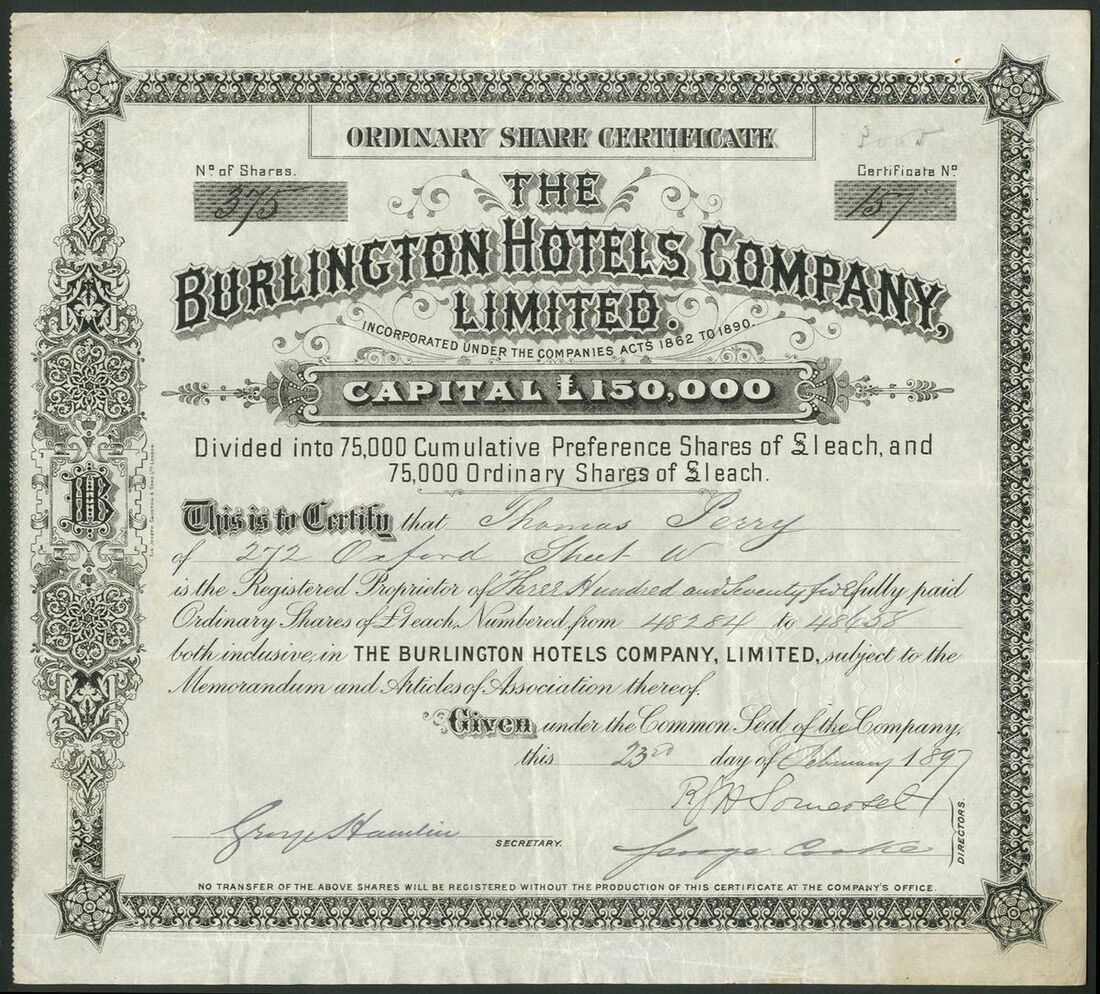 ORDINARY SHARE CERTIFICATE
3005
Nº of Shares.
375
Certificate Nº
157
THE
BURLINGTON HOTELS COMPANY,
LIMITED.
INCORPORATED UNDER THE COMPANIES ACTS 1862 TO 1890.
CAPITAL £150,000
Divided into 75,000 Cumulative Preference Shares of £1 each, and
75,000 Ordinary Shares of £1 each.
This is to Certify that Thomas Perry
of 272 Oxford Street W
is the Registered Proprietor of Three Hundred and Seventy five fully paid
Ordinary Shares of £1 each, Numbered from 48284 to 48658
both inclusive, in THE BURLINGTON HOTELS COMPANY, LIMITED, subject to the
Memorandum and Articles of Association thereof.
Given under the Common Seal of the Company,
this 23rd day of February 1897
R J H Somerset
George Hamlin
SECRETARY.
George Cooke
DIRECTORS.
NO TRANSFER OF THE ABOVE SHARES WILL BE REGISTERED WITHOUT THE PRODUCTION OF THIS CERTIFICATE AT THE COMPANY'S OFFICE.